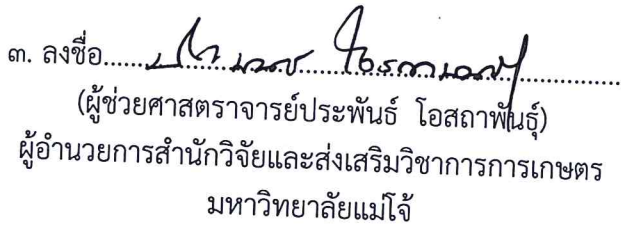 ๓. ลงชื่อ
(ผู้ช่วยศาสตราจารย์ประพันธ์ โอสถาพันธุ์)
ผู้อำนวยการสำนักวิจัยและส่งเสริมวิชาการการเกษตร
มหาวิทยาลัยแม่โจ้